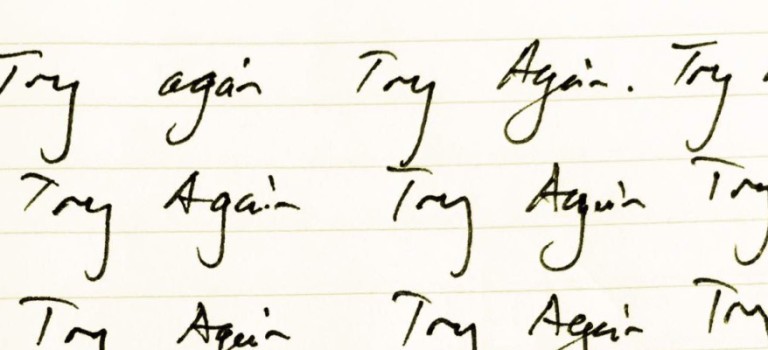 Try again Try Again. Try
Try Again Try Again Try
Try Again Try Again Try